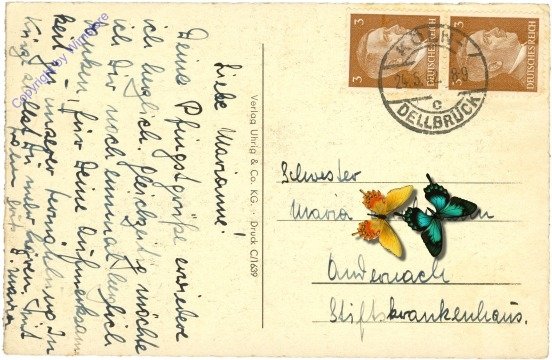 Liebe Marianne!
Deine Pfingstgrüße erwidere
ich herzlich. Gleichzeitig möchte
ich Dir noch einmal herzlich
danken, für Deine Aufmerksam-
keit zu unserer Vermählung. In
Kürze wirst Du mehr hören, mit
Copyright by WIPOMAX
Verlag Uhrig & Co. KG. · Druck C/1639
3
DEUTSCHES REICH
3
DEUTSCHES REICH
KÖLN
c
DELLBRÜCK
Schwester
Maria
Andernach
Stiftskrankenhaus.